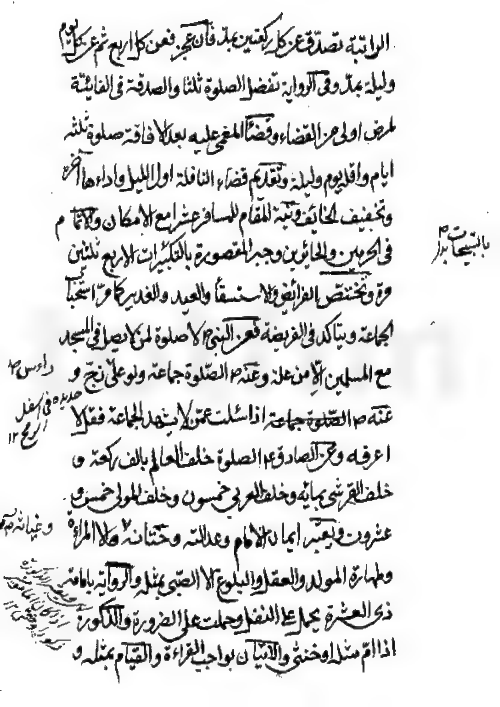 الراتبة تصدق عن كل ركعتين بمد فان عجز فعن كل اربع ثم عن كل يوم
وليلة بمد وفى الرواية تفضل الصلوة ثلثا والصدقة فى الفائتة
لمرض اولى من القضاء وقضاء المغمى عليه بعد الافاقة صلوة ثلثه
ايام واقله يوم وليلة وتقديم قضاء النافلة اول الليل واداءها آخره
وتخفيف الخائف ونية المقام للمسافر عشرا مع الامكان والاتمام
فى الحرمين والحائرين وجبر المقصورة بالتكبيرات الاربع ثلثين
مرة وتختص الفرائض والاستسقاء والعيد والغدير كما مر استحبابا
الجماعة ويتاكد فى الفريضة فعن النبى لا صلوة لمن لا يصل فى المسجد
مع المسلمين الا من علة وعنه الصلوة جماعة ولو على زج و
عنه الصلوة جماعة اذا سئلت عمن لا يشهد الجماعة فقل لا
اعرفه وعن الصادق الصلوة خلف العالم بالف ركعة و
خلف القرشى بمائة وخلف العربى خمسون وخلف المولى خمس و
عشرون ويعتبر ايمان الامام وعدالته وختانه والا المراة
وطهارة المولد والعقل والبلوغ الا الصبى بمثله والرواية بامامة
ذى العشرة يحمل على النفل وحملت على الضرورة والذكورة
اذا ام مثله او خنثى والاتيان بواجب القراءة والقيام بمثله و
بالتسبيحات
حديدة فى اسفل
الرمح ١٢